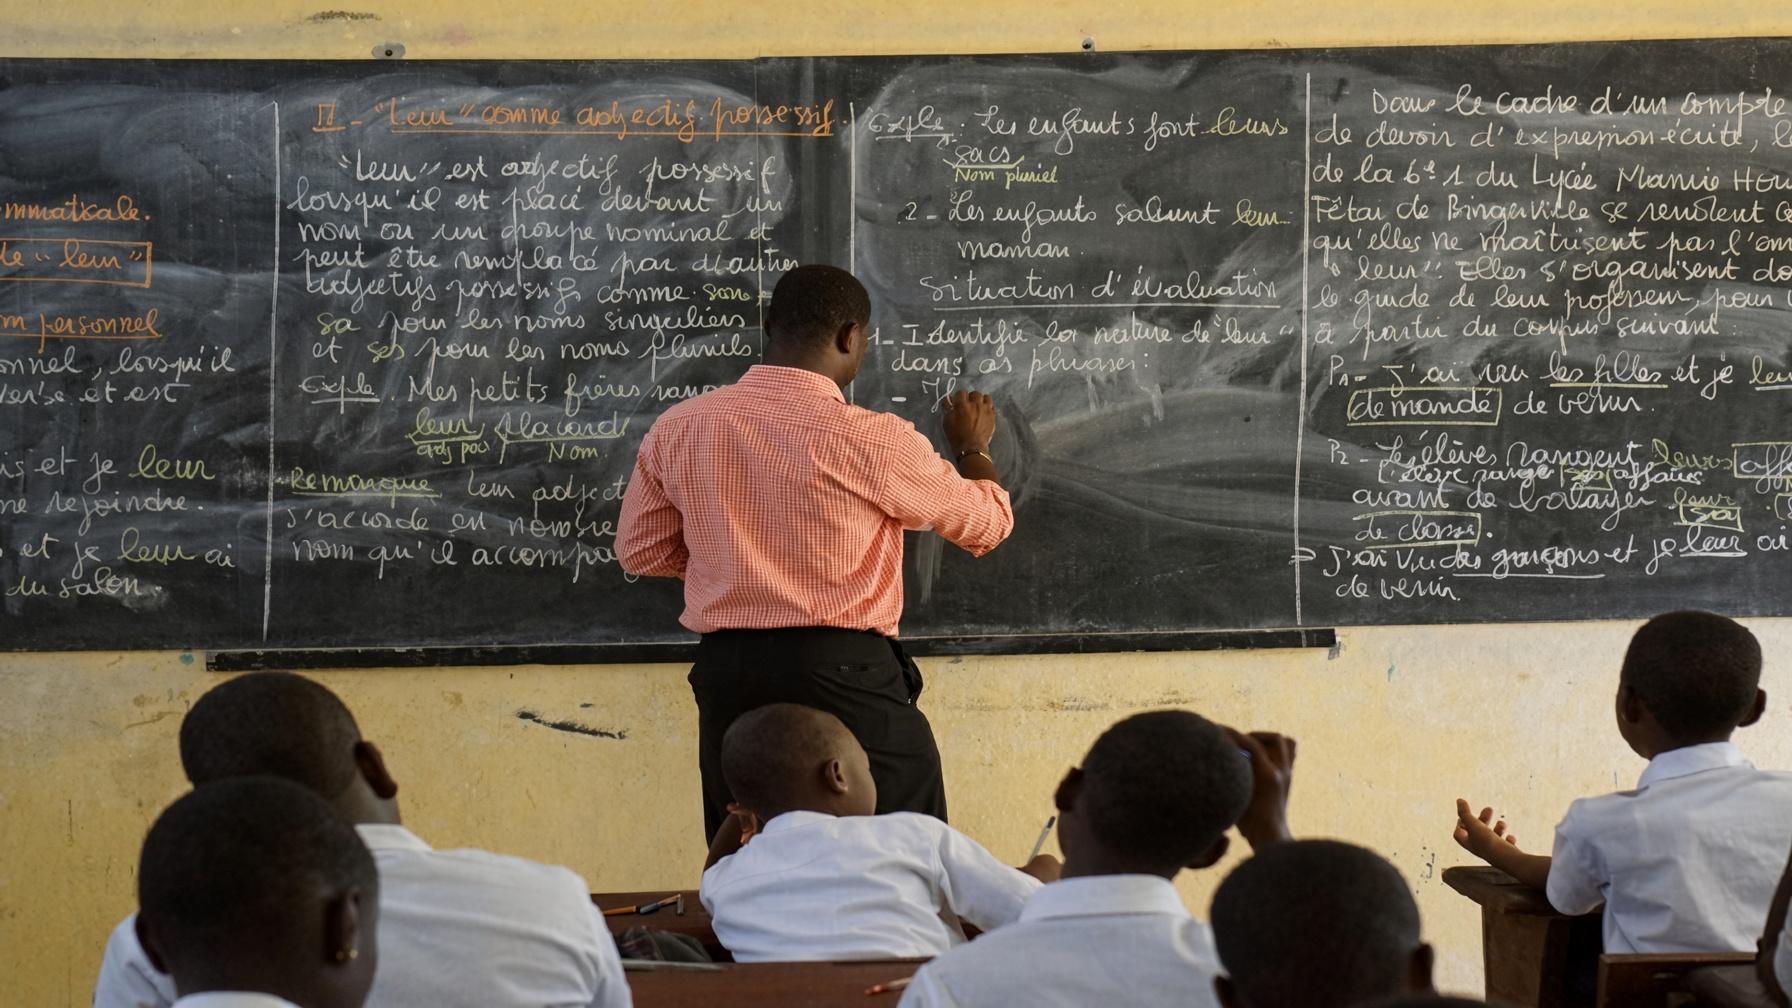 mmaticale.
de "leur"
m personnel
nnel, lorsqu'il
verbe et est
is et je leur
me rejoindre.
et je leur ai
du salon.
II - "Leur" comme adjectif possessif.
"Leur" est adjectif possessif
lorsqu'il est placé devant un
nom ou un groupe nominal et
peut être remplacé par d'autres
adjectifs possessifs comme son -
sa pour les noms singuliers
et ses pour les noms pluriels.
Exple. Mes petits frères
leur placard
adj poss Nom.
Remarque leur adject
s'accorde en nombre
nom qu'il accompa
Exple. Les enfants font leurs
sacs
Nom pluriel
2 - Les enfants saluent leur
maman.
Situation d'évaluation
1 - Identifie la nature de "leur"
dans ces phrases:
-
Dans le cadre d'un compte
de devoir d'expression écrite, l
de la 6e 1 du Lycée Mamie Hou
Fêtai de Bingerville se rendent c
qu'elles ne maîtrisent pas l'em
"leur". Elles s'organisent do
le guide de leur professeur, pour
à partir du corpus suivant:
P1 - J'ai vu les filles et je leu
demandé de venir.
P2 - Les élèves rangent leurs aff
L'élève range ses affaires
avant de balayer leur
sa
de classe.
⇒ J'ai vu des garçons et je leur ai
de venir.